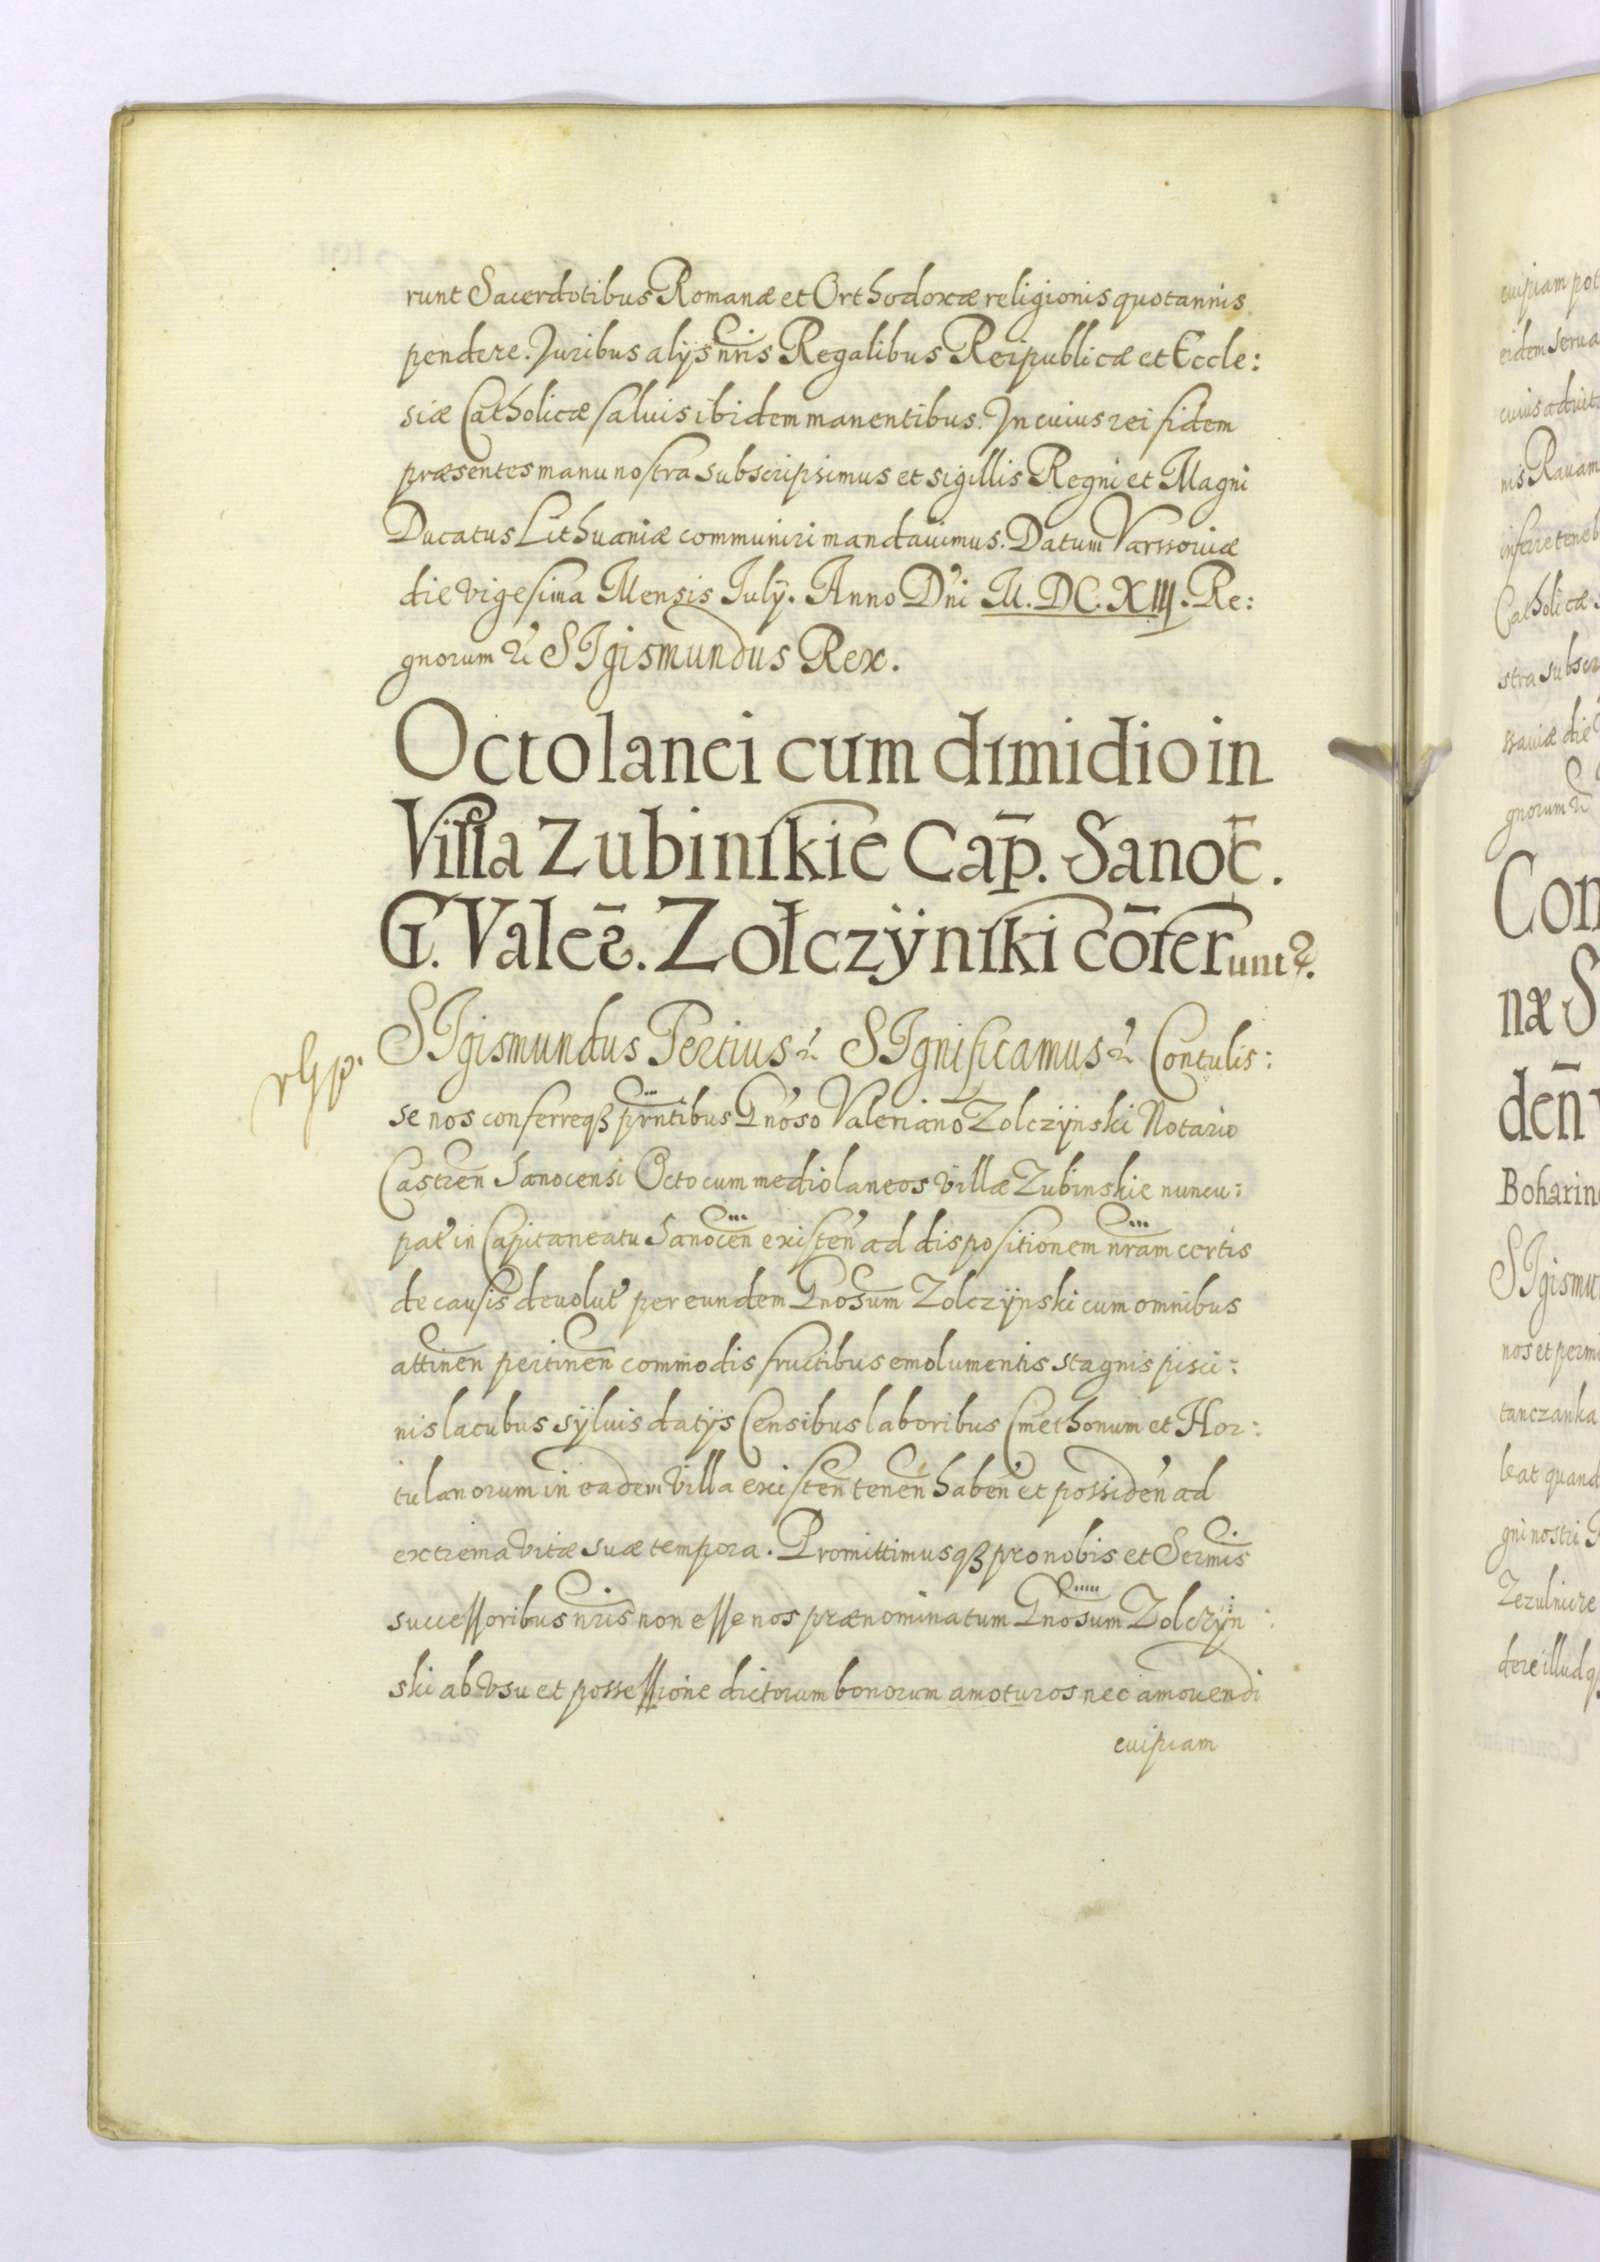 runt Sacerdotibus Romanæ et Orthodoxæ religionis quotannis
pendere. Juribus alijs nr̃is Regalibus Reipublicæ et Eccle:
siæ Catholicæ saluis ibidem manentibus. In cuius rei fidem
præsentes manu nostra subscripsimus et sigillis Regni et Magni
Ducatus Lithuaniæ communiri mandauimus. Datum Varssoviæ
die vigesima Mensis July. Anno Dni M. DC. XIII. Re:
gnorum &c SIgismundus Rex.
Octo lanei cum dimidio in
Villa Zubinſkie Cap̃. Sanoc̃.
G. Vale͠r. Zołczÿnſki cõfer unt&.
SIgismundus Tertius &c SIgnificamus &c Contulis:
se nos conferreqꝫ prñtibus Gnoso Valeriano Zolczÿnski Notario
Castren̄ Sanocensi Octo cum medio laneos villæ Zubinskie nuncu:
pat' in Capitaneatu Sanocen̄ existen' ad dispositionem nr̃am certis
de causis deuolut' per eundem Gnosum Zolczÿnski cum omnibus
attinen̄ pertinen̄ commodis fructibus emolumentis stagnis pisci:
nis lacubus sÿluis datÿs Censibus laboribus Cmethonum et Hor:
tulanorum in eadem villa existen̄ tenen̄ haben' et possiden' ad
extrema vitæ suæ tempora. Promittimusqꝫ pro nobis et Sermis
successoribus nr̃is non esse nos prænominatum Gnosum Zolczÿn:
ski ab vsu et possessione dictorum bonorum amoturos nec amouendi
cuipiam
cuipiam pot
eidem serua
cuius aduit
nis Rauam
inferre teneb
Catholicæ s
stra subscr
ssauiæ die
gnorum &c
Con
næ S
deñ v
Boharin
SIgismu
nos et permi
tanczanka
leat quand
gni nostri
Zezulnice
dere illud q